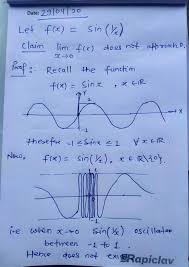 Date: 29/04/20
Let f(x) = Sin(1/x)
Claim lim x→0 f(x) does not approach
Proof :- Recall the function
f(x) = Sin x , x ∈ ℝ
Y
1
x
-1
therefore -1 ≤ Sin x ≤ 1 ∀ x ∈ ℝ
Now, f(x) = Sin(1/x), x ∈ ℝ\{0}
i.e when x→0 Sin(1/x) oscillates
between -1 to 1.
Hence does not
Rapiclav